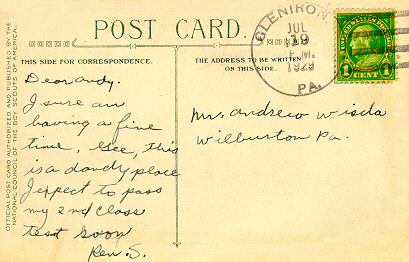 OFFICIAL POST CARD AUTHORIZED AND PUBLISHED BY THE
NATIONAL COUNCIL OF THE BOY SCOUTS OF AMERICA.
POST CARD.
THIS SIDE FOR CORRESPONDENCE.
THE ADDRESS TO BE WRITTEN
ON THIS SIDE.
Dear andy.
I sure am
having a fine
time, Gee, this
is a dandy place
I expect to pass
my 2nd class
test soon
Ren. S.
GLENIRON
JUL
19
P.M.
1929
PA.
1 CENT 1
Mr. andrew Wisda
Wilburton Pa.